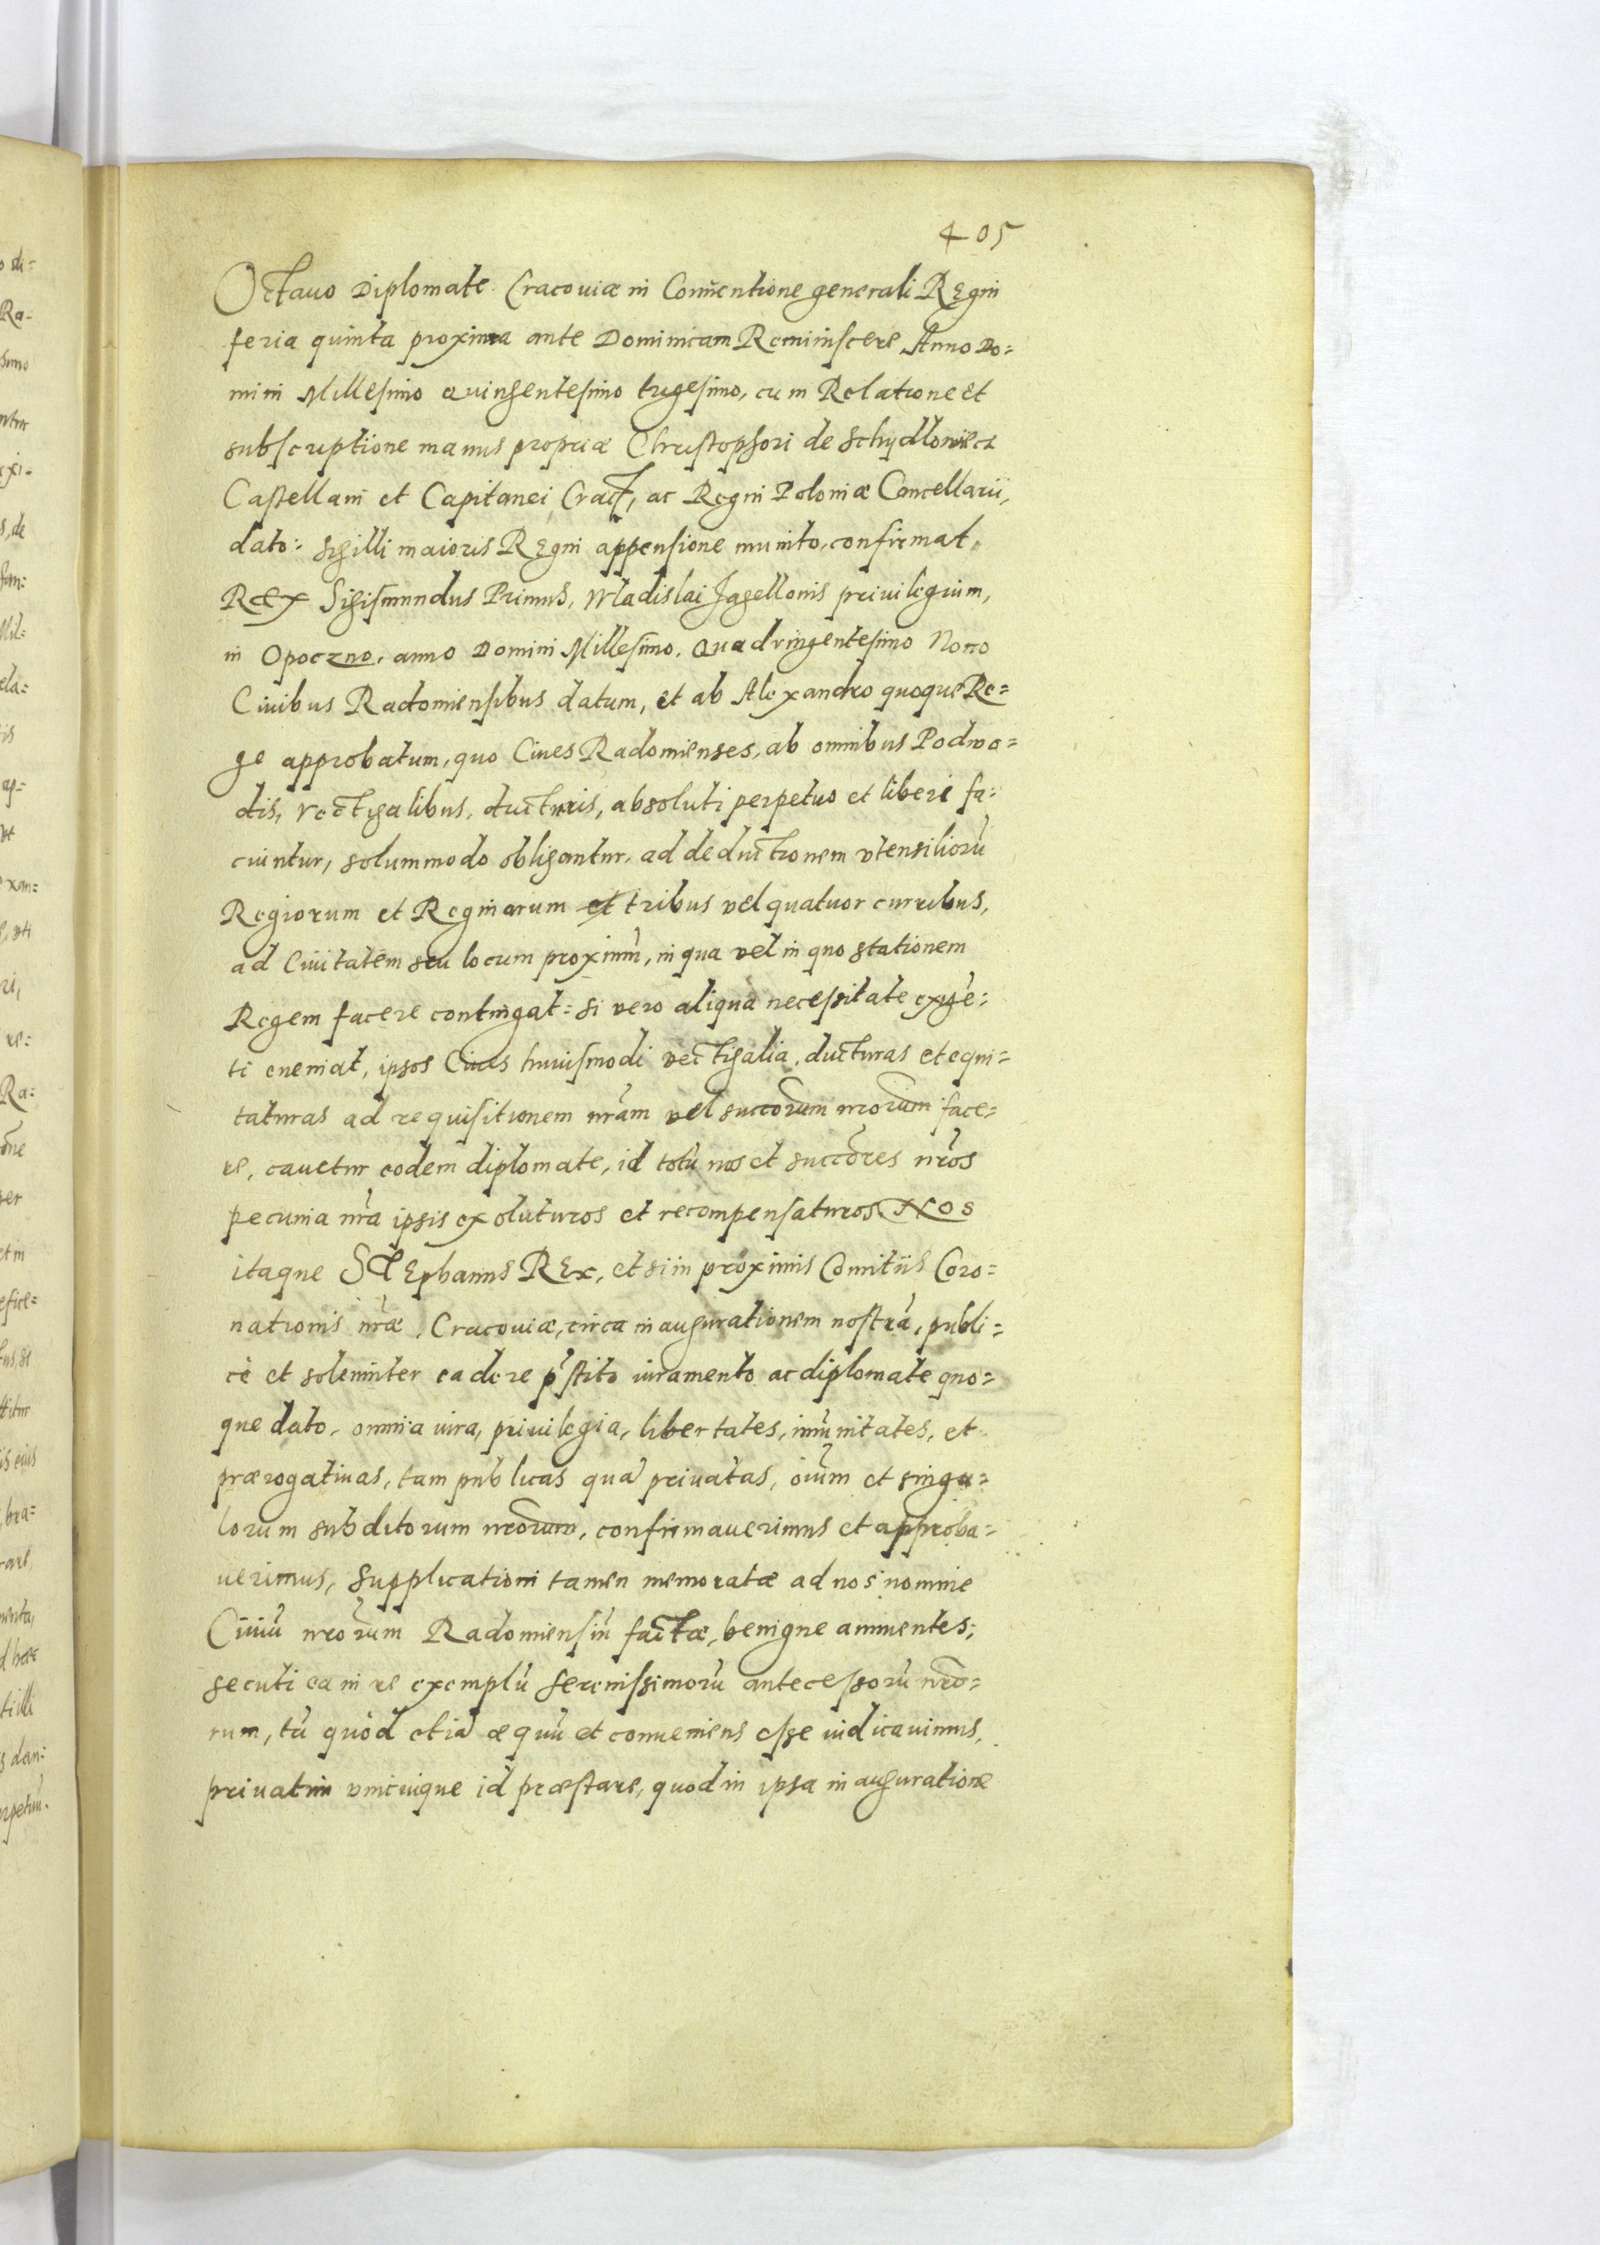 405
Octauo Diplomate Cracouiæ in Conūentione generali Regni
feria quinta proxima ante Dominicam Reminiscere Anno Do=
mini Millesimo Quingentesimo trigesimo, cum Relatione et
subscriptione manus propriæ Christophori de Schydlowiecz
Castellani et Capitanei Crac̄, ac Regni Poloniæ Cancellarii,
dato: sigilli maioris Regni appensione munito, confirmat
Rex Sigismundus Primus, Wladislai Jagellonis priuilegium,
in Opoczno, anno Domini Millesimo Quadringentesimo Nono
Ciuibus Radomiensibus datum, et ab Alexandro quoque Re=
ge approbatum, quo Ciues Radomienses, ab omnibus Podwo=
dis, vectigalibus, ducturis, absoluti perpetuo et liberi fa=
ciuntur, solummodo obligantur, ad deductionem vtensilioru̅
Regiorum et Reginarum et tribus vel quatuor curribus,
ad Ciuitatem seu locum proximu̅, in qua vel in quo stationem
Regem facere contingat: si vero aliqua necessitate exige̅=
ti eueniat, ipsos Ciues huiusmodi vectigalia, ducturas et equi=
taturas ad requisitionem nr̄am vel succōrum nrorum face=
re, cauetur eodem diplomate, id totu̅ nos et succōres nr̄os
pecunia nr̄a ipsis exoluturos et recompensaturos Nos
itaque Stephanus Rex, et si in proximis Comitiis Coro=
nationis nr̄æ Cracouiæ, circa inaugurationem nostra̅, publi=
cè et solenniter ea de re p̄stito iuramento ac diplomate quo=
que dato, omnia iura, priuilegia, libertates, imu̅nitates, et
prærogatiuas, tam publicas qua̅ priuatas, oiu̅m et singu=
lorum subditorum nrorum, confirmauerimus et approba=
uerimus, supplicationi tamen memoratæ ad nos nomine
Ciuiu̅ nrorum Radomiensiu̅ factæ, benigne annuentes;
secuti ea in re exemplu̅ serenissimoru̅ antecessoru̅ nro=
rum, tu̅ quòd etia̅ æquu̅ et conueniens esse iudicauimus,
priuatim vnicuique id præstare, quod in ipsa inauguratione